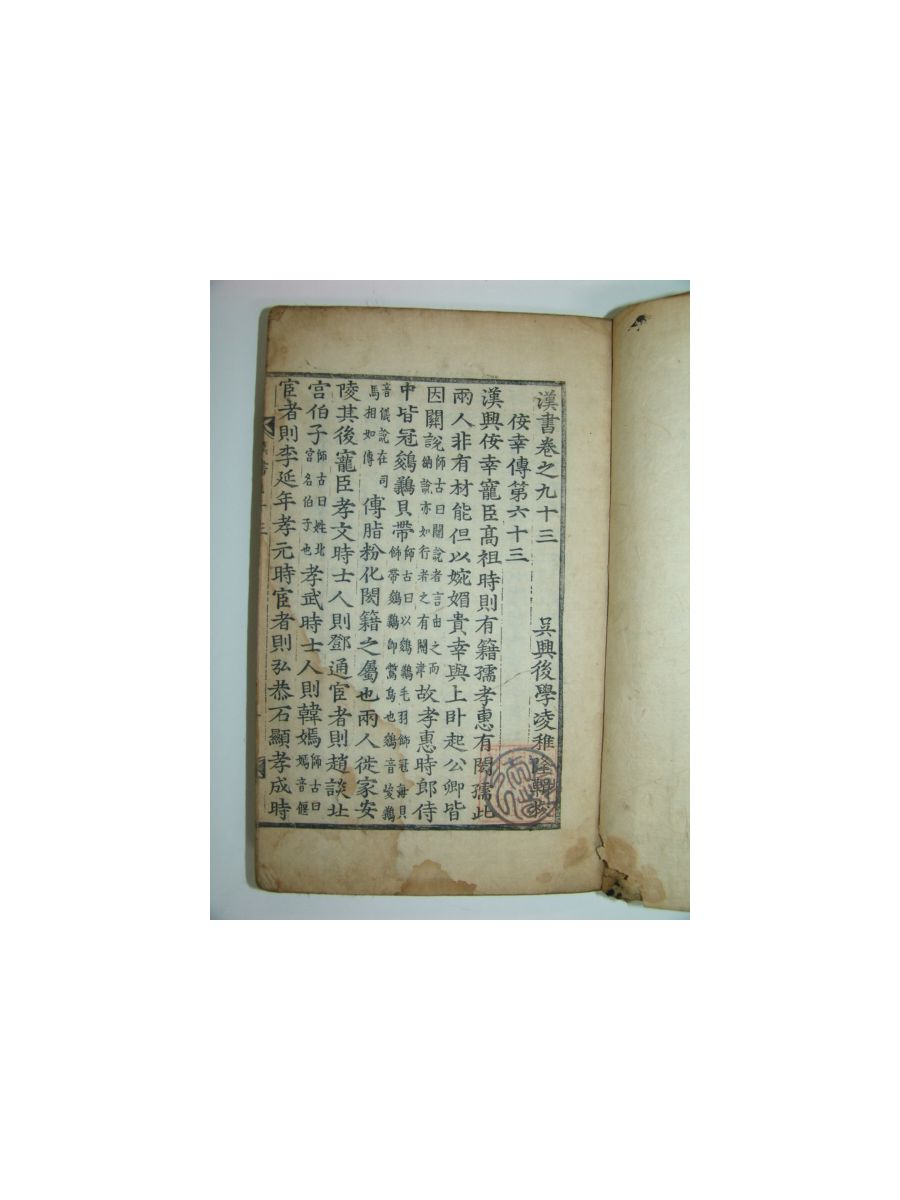 漢書卷之九十三 吳興後學凌稚隆輯校
佞幸傳第六十三
漢興佞幸寵臣髙祖時則有籍孺孝惠有閎孺此
兩人非有材能但以婉媚貴幸與上卧起公卿皆
因關說師古曰關說者言由之而納說亦如行者之有關津故孝惠時郎侍
中皆冠鵔鸃貝帶師古曰以鵔鸃毛羽飾冠海貝飾帶鵔鸃即鷩鳥也鵔音峻鸃
音儀說在司馬相如傳傅脂粉化閎籍之屬也兩人徙家安
陵其後寵臣孝文時士人則鄧通宦者則趙談北
宫伯子師古曰姓北宫名伯子也孝武時士人則韓嫣師古曰嫣音偃
宦者則李延年孝元時宦者則弘恭石顯孝成時